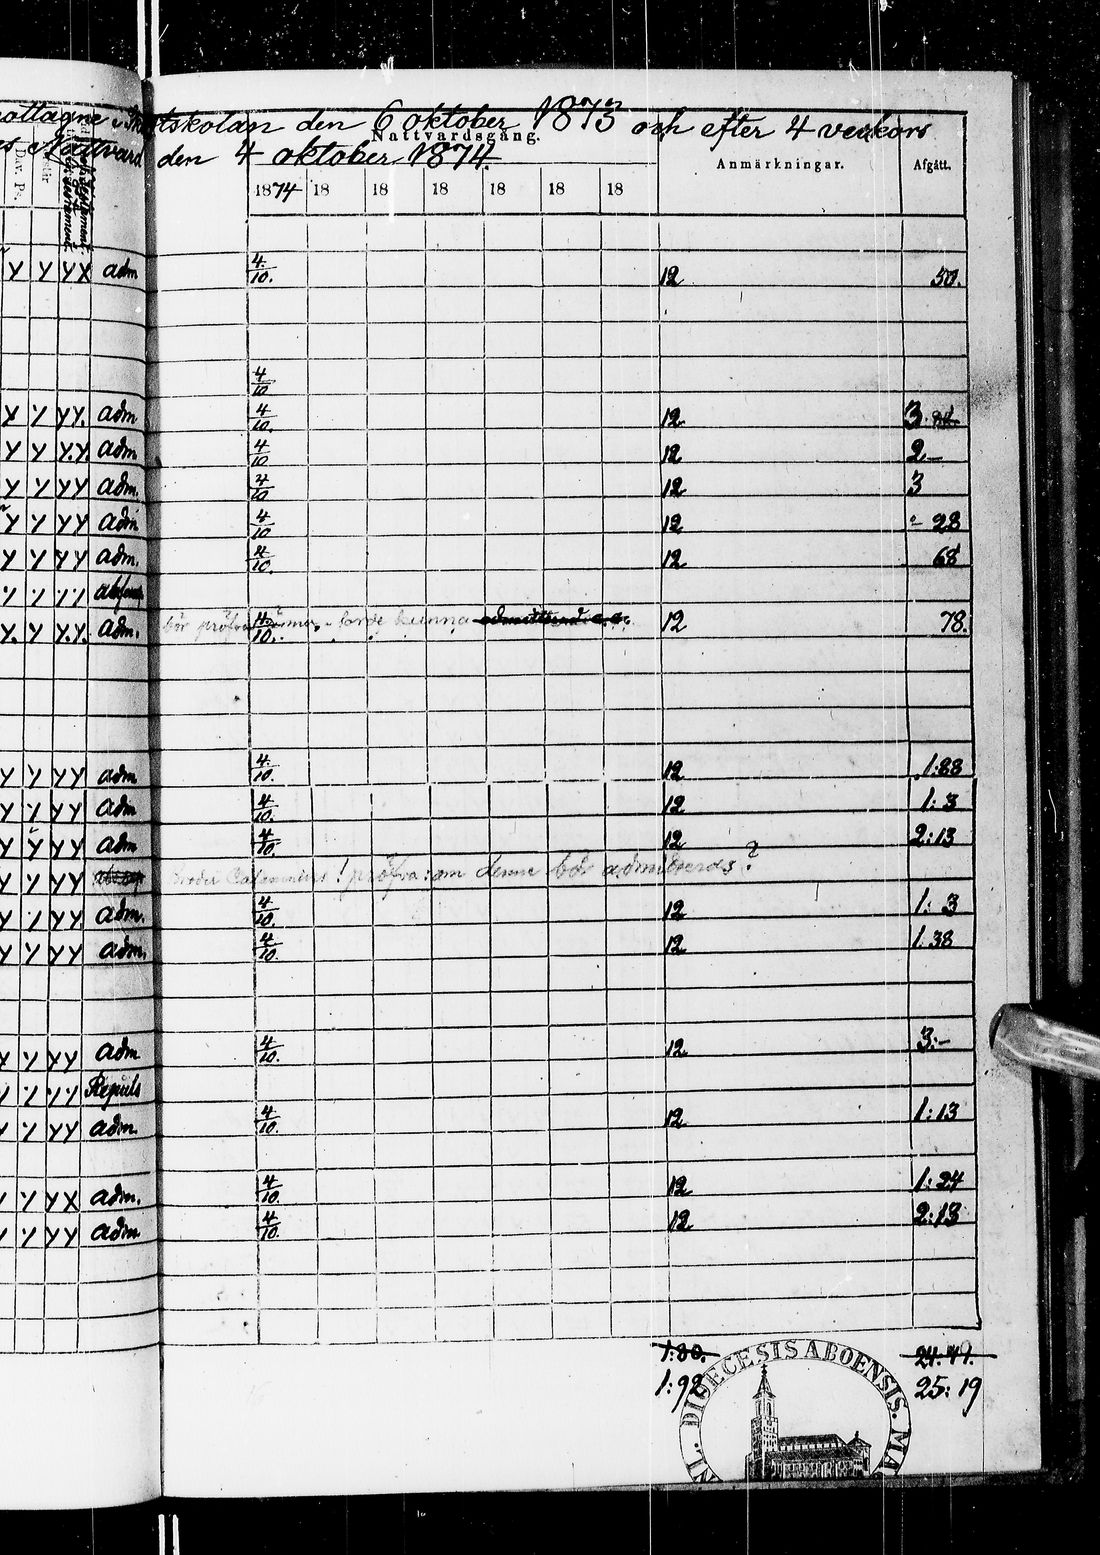 ottagne i skriftskolan den 6 oktober 1873 och efter 4 veckors
s Nattvard den 4 oktober 1874.
Nattvardsgång.
Anmärkningar. Afgått.
Dav. Ps.
1874 18 18 18 18 18 18
y y y x adm 4/10. 12 50.
4/10
y y y y. adm 4/10. 12 3.
y y y. y. adm 4/10 12 2–
y y y y adm. 4/10 12 3
y y y y adm 4/10 12 28
y y y y adm. 4/10. 12 68
y y y y
y. y y. y. adm. bör pröfvas borde kunna 4/10. 12 78.
y y y y adm 4/10. 12 1:88
y y y y adm 4/10. 12 1:3
y y y y adm 4/10. 12 2:13
y y y y ! pröfva: om denne bör admitteras?
y y y y adm. 4/10. 12 1:3
y y y y adm. 4/10. 12 1.38
y y y y adm 4/10. 12 3:–
y y y y Repuls
y y y y adm. 4/10. 12 1:13
y y y x adm. 4/10. 12 1:24
y y y y adm. 4/10. 12 2:13
1:80. 24:49.
1:92 25:19
NL. DIOECESIS ABOENSIS. MA